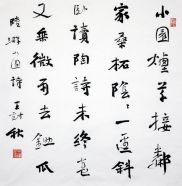 小園煙草接鄰
家桑柘陰陰一徑斜
卧讀陶詩未終卷
又乘微雨去鋤瓜
陸游小園詩 王 秋